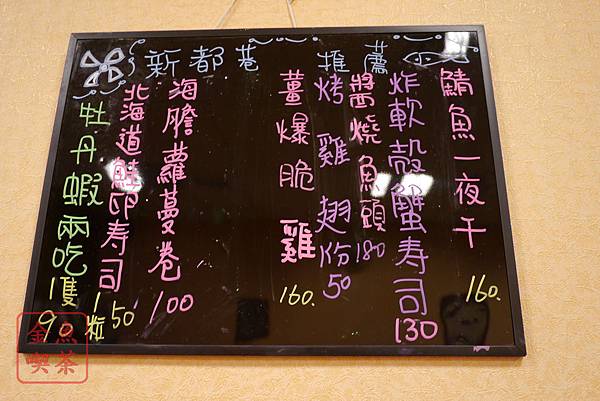 新都巷 推薦
鯖魚一夜干 160.
炸軟殼蟹寿司 130
醬燒魚頭 180
烤雞翅份 50
薑爆脆雞 160.
海膽蘿蔓卷 100
北海道鮭卵寿司 1粒 50
牡丹蝦兩吃 1隻 90
金魚喫茶